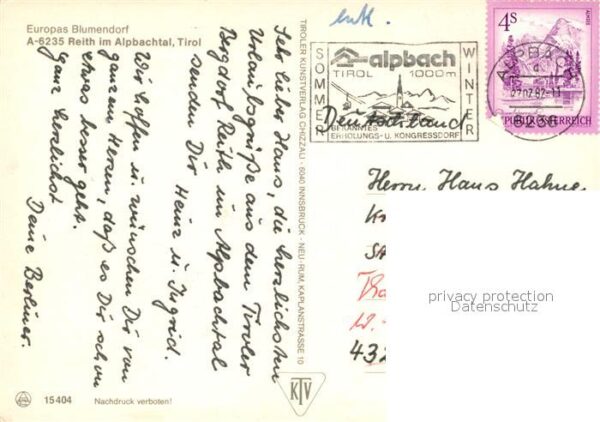 Europas Blumendorf
A-6235 Reith im Alpbachtal, Tirol
Sehr lieber Hans, die herzlichsten
Urlaubsgrüße aus dem Tiroler
Bergdorf Reith im Alpbachtal
senden Dir Heinz u. Ingrid.
Wir hoffen u. wünschen Dir von
ganzem Herzen, daß es Dir schon
etwas besser geht.
Ganz herzlichst
Deine Berliner.
15404 Nachdruck verboten!
TIROLER KUNSTVERLAG CHIZZALI · 6040 INNSBRUCK - NEU-RUM, KAPLANSTRASSE 10
KTV
SOMMER
alpbach
TIROL 1000m
BEKANNTES
ERHOLUNGS- U. KONGRESSDORF
WINTER
4S
REPUBLIK ÖSTERREICH
ALPBACH
6236
Deutschland
Herrn Hans Hahne
432
privacy protection
Datenschutz